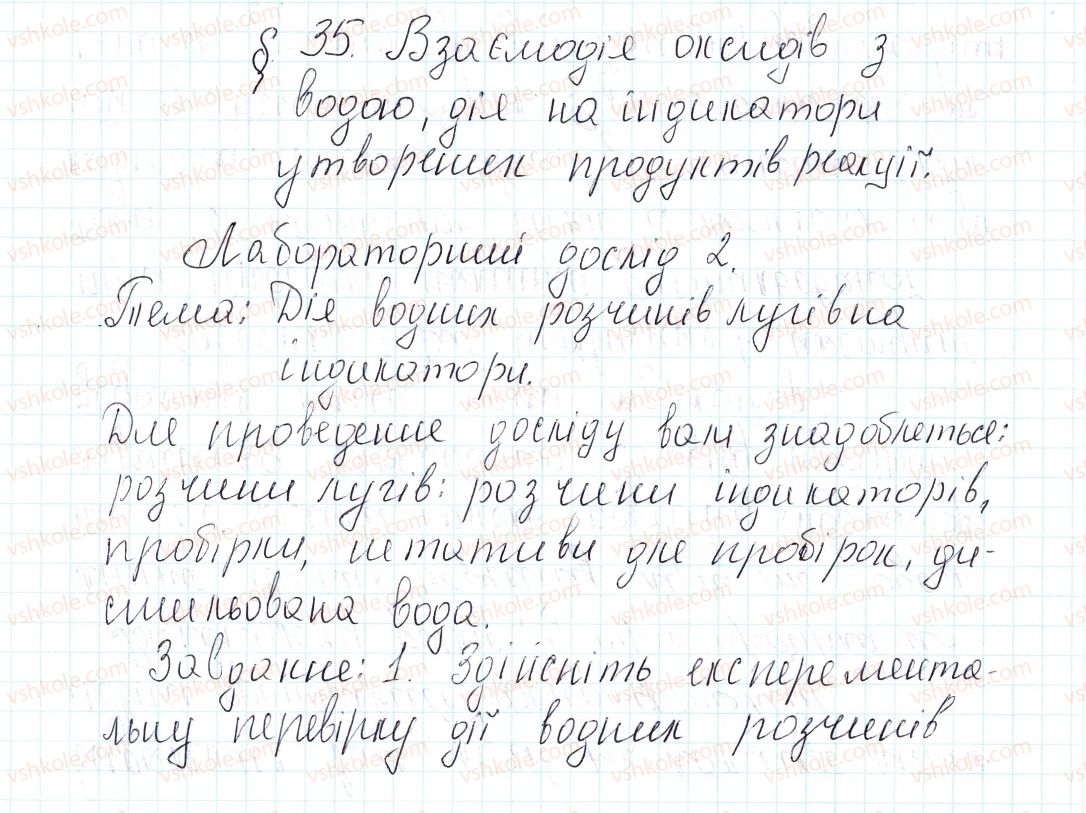 § 35. Взаємодія оксидів з
водою, дія на індикатори
утворених продуктів реакції.
Лабораторний дослід 2.
Тема: Дія водних розчинів лугів на
індикатори.
Для проведення досліду вам знадобляться:
розчини лугів: розчини індикаторів,
пробірки, штативи для пробірок, ди-
стильована вода.
Завдання: 1. Здійсніть ексреремента-
льну перевірку дії водних розчинів